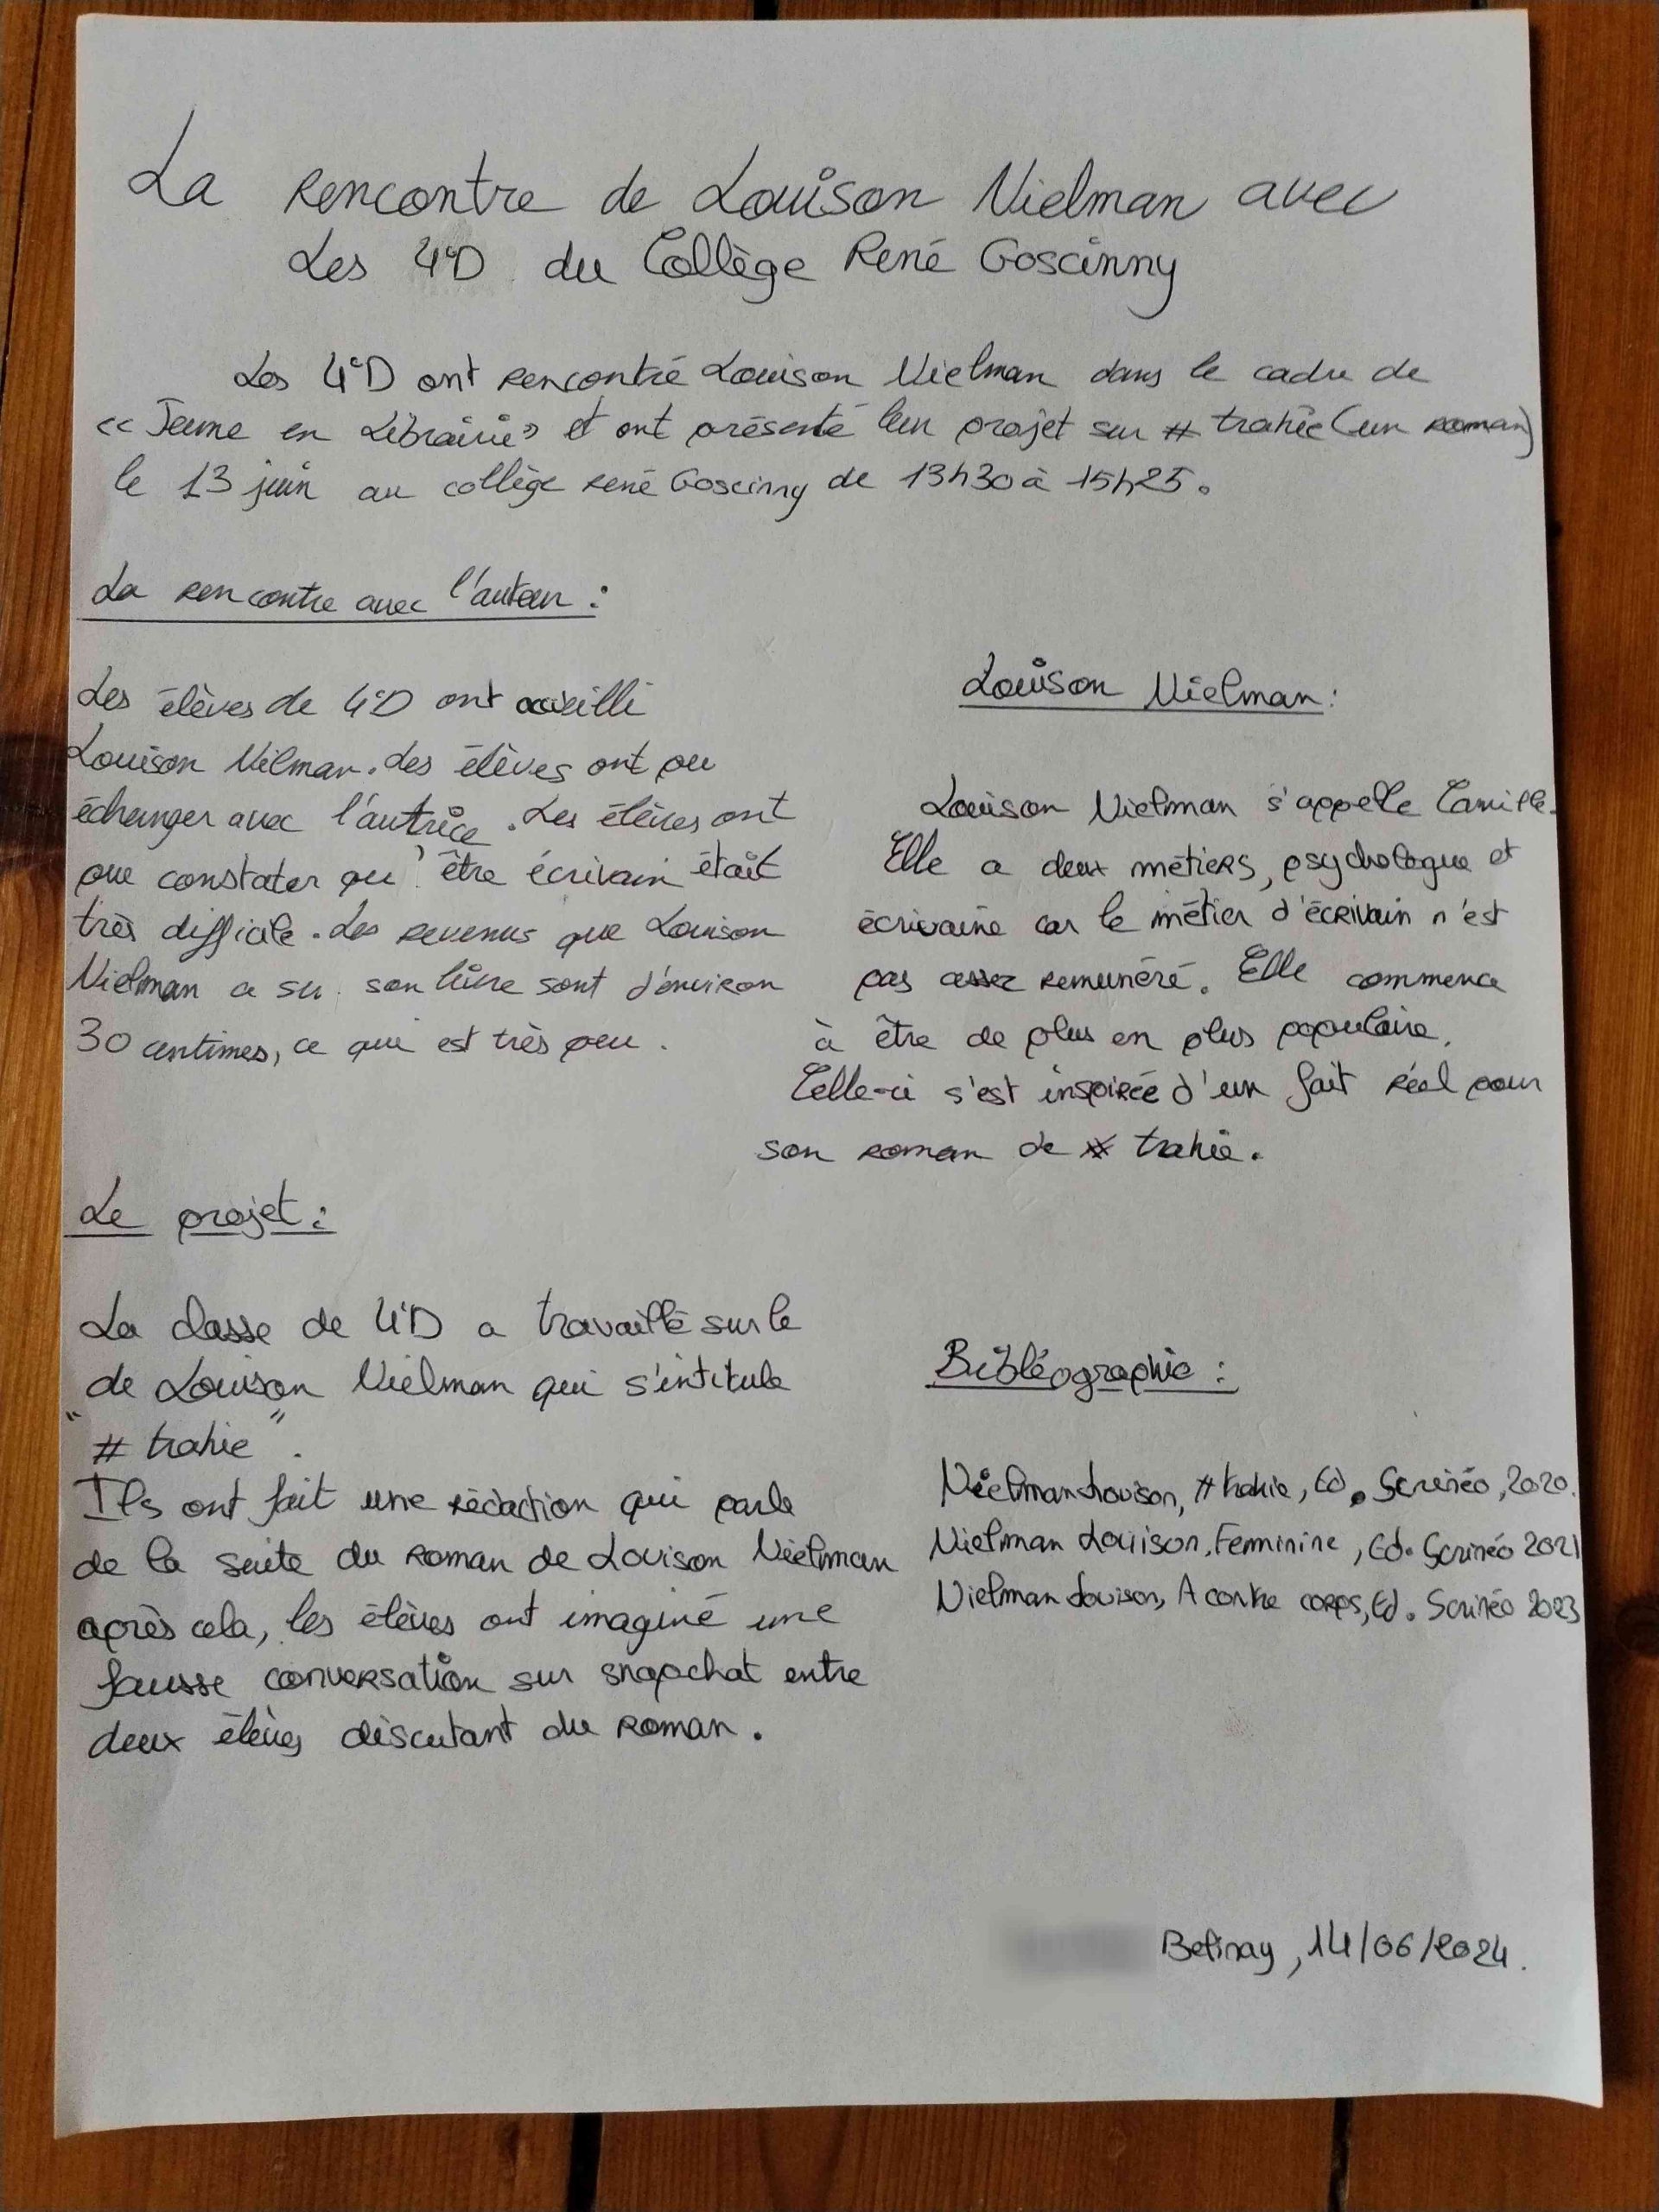 La rencontre de Louison Nielman avec
Les 4°D du Collège René Goscinny
Les 4°D ont rencontré Louison Nielman dans le cadre de
« Jeune en Librairie » et ont présenté leur projet sur # trahie (un roman)
le 13 juin au collège René Goscinny de 13h30 à 15h25.
La rencontre avec l'auteur :
Les élèves de 4°D ont accueilli
Louison Nilman. Les élèves ont pu
échanger avec l'autrice. Les élèves ont
pue constater qu'être écrivain était
très difficile. Les revenus que Louison
Nielman a su son livre sont d'environ
30 centimes, ce qui est très peu.
Louison Nielman :
Louison Nielman s'appelle Camille.
Elle a deux métiers, psychologue et
écrivaine car le métier d'écrivain n'est
pas assez remunéré. Elle commence
à être de plus en plus populaire.
Celle-ci s'est inspirée d'un fait réel pour
son roman de # trahie.
Le projet :
La classe de 4°D a travaillé sur le
de Louison Nielman qui s'intitule
"# trahie".
Ils ont fait une rédaction qui parle
de la suite du roman de Louison Nielman
après cela, les élèves ont imaginé une
fausse conversation sur snapchat entre
deux élèves discutant du roman.
Bibléographie :
Nielman Louison, # trahie, Ed. Scrinéo, 2020.
Nielman Louison, Feminine, Ed. Scrinéo 2021
Nielman Louison, A contre corps, Ed. Scrinéo 2023
Belinay, 14/06/2024.